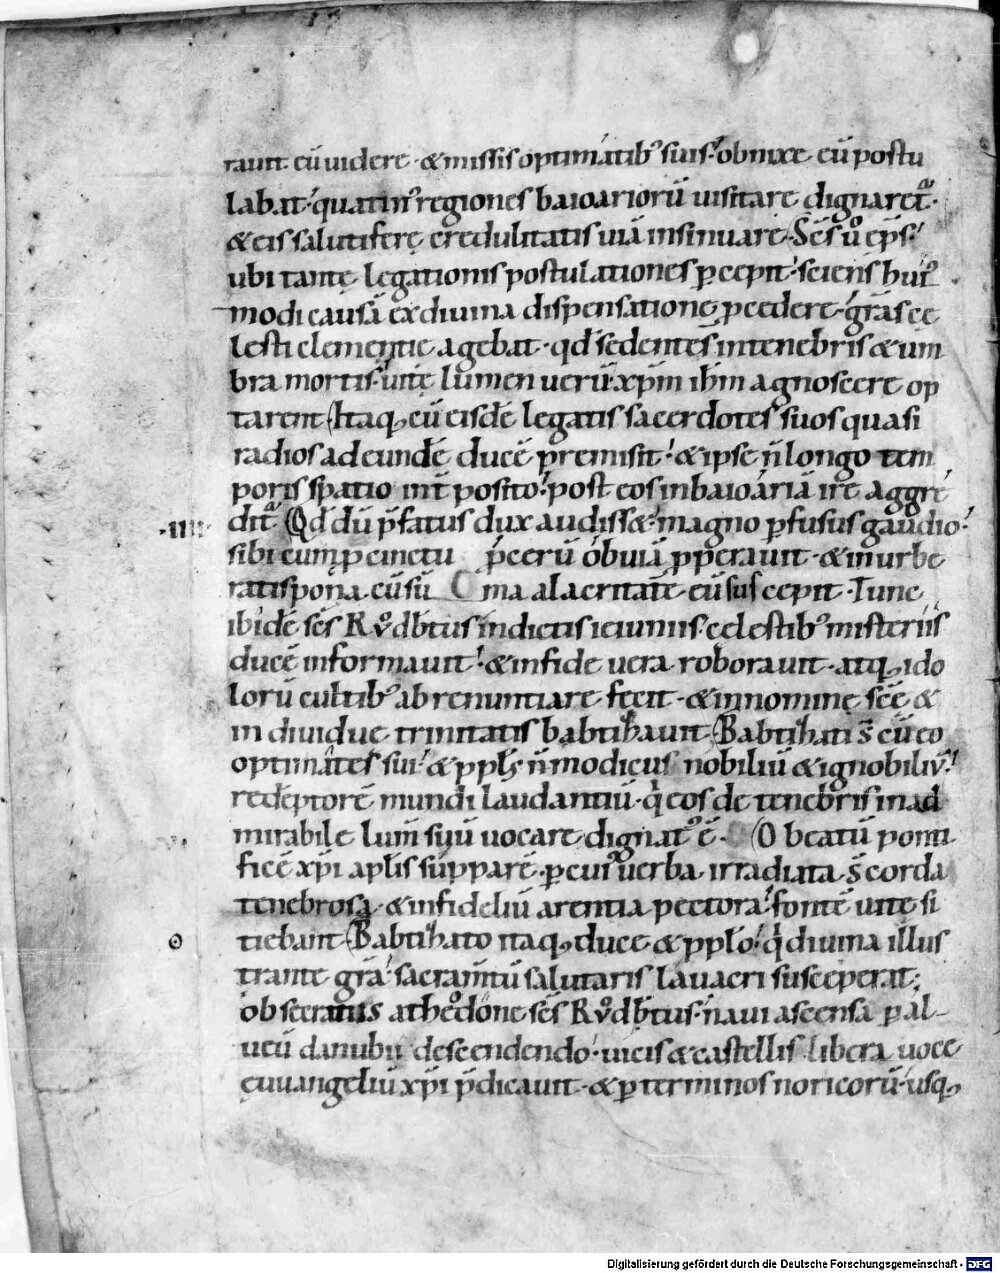 rauit cū uidere · & missis optimatib; suis · obnixe eū postu
labat · quatin' regiones baioariorū uisitare dignaret᷑ ·
& eis salutiferę credulitatis uiā insinuare · S̄cs ů ep̄s ·
ubi tantę legationis postulationes ꝑcepit · sciens hui'
modi causā ex diuina dispensatione ꝓcedere · gr̄as cę
lesti clementię agebat · qd̄ sedentes in tenebris & um
bra mortis · uitę lumen uerū · xp̄m ih̄m agnoscere op
tarent Itaq; cū eisdē legatis sacerdotes suos quasi
radios ad eundē ducē premisit · & ipse n̄ longo tem
poris spatio int̄posito · post eos in baioariā ire aggre
dit᷑ Qd̄ dū p̄fatus dux audiss& · magno ꝑfusus gaudio ·
·IIII·
sibi cum p̄cinctu ꝓcerū obuiā ꝓperauit · & in urbe
ratispona · eū sūma alacritate eū suscepit · Tunc
ibidē s̄cs Rvͦdb̄tus indictis ieiuniis · cęlestib; misteriis
ducē informauit · & in fide uera roborauit · atq; ido
lorū cultib; abrenuntiare fecit · & in nomine s̄cę &
indiuiduę trinitatis babtizauit Babtizati s̄ cū eo
optimates sui · & ppl̄s n̄ modicus nobiliū & ignobiliū ·
redēptorē mundi laudantiū · qͥ eos de tenebris in ad
mirabile lum̄ suū uocare dignat' ē · O beatū ponti
ficē xp̄i apl̄is supparē · ꝑ cui' uerba irradiata s̄ corda
tenebrosa · & infideliū arentia pectora · fontē uitę si
tiebant Babtizato itaq; duce & ppl̄o · qͥ diuina illus
⊙
trante gr̄a · sacram̄tū salutaris lauacri susceperat ;
obsecratus ab eodē duce s̄cs Rvͦdb̄tus · naui ascensa ꝑ al-
ueū danubii descendendo · uicis & castellis libera uoce
ęuuangeliū xp̄i p̄dicauit · & ꝑ terminos noricorū · usq;
Digitalisierung gefördert durch die Deutsche Forschungsgemeinschaft - DFG